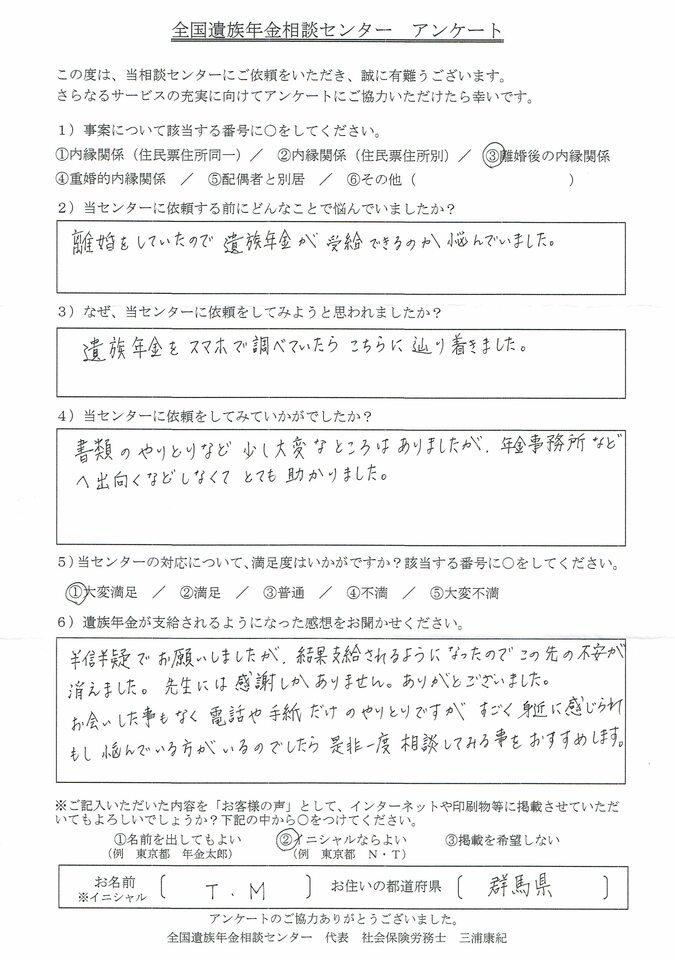 全国遺族年金相談センター　アンケート
この度は、当相談センターにご依頼をいただき、誠に有難うございます。
さらなるサービスの充実に向けてアンケートにご協力いただけたら幸いです。
1）事案について該当する番号に○をしてください。
①内縁関係（住民票住所同一）／　②内縁関係（住民票住所別）／　③離婚後の内縁関係
④重婚的内縁関係　／　⑤配偶者と別居　／　⑥その他（　　　　　　　　　）
2）当センターに依頼する前にどんなことで悩んでいましたか？
離婚をしていたので 遺族年金が 受給できるのか 悩んでいました。
3）なぜ、当センターに依頼をしてみようと思われましたか？
遺族年金を スマホで調べていたら こちらに 辿り着きました。
4）当センターに依頼をしてみていかがでしたか？
書類のやりとりなど 少し大変なところはありましたが、年金事務所など
へ出向くなどしなくて とても 助かりました。
5）当センターの対応について、満足度はいかがですか？該当する番号に○をしてください。
①大変満足　／　②満足　／　③普通　／　④不満　／　⑤大変不満
6）遺族年金が支給されるようになった感想をお聞かせください。
半信半疑で お願いしましたが、結果支給されるように なったので この先の 不安が
消えました。先生には 感謝しかありません。ありがとございました。
お会いした事もなく 電話や手紙 だけのやりとりですが すごく 身近に 感じられ
もし 悩んでいる方がいるのでしたら 是非一度 相談してみる事を おすすめします。
※ご記入いただいた内容を「お客様の声」として、インターネットや印刷物等に掲載させていただ
いてもよろしいでしょうか？下記の中から○をつけてください。
①名前を出してもよい　　②イニシャルならよい　　③掲載を希望しない
（例　東京都　年金太郎）　　（例　東京都　N・T）
お名前
※イニシャル〔　T．M　〕お住いの都道府県〔　群馬県　〕
アンケートのご協力ありがとうございました。
全国遺族年金相談センター　代表　社会保険労務士　三浦康紀